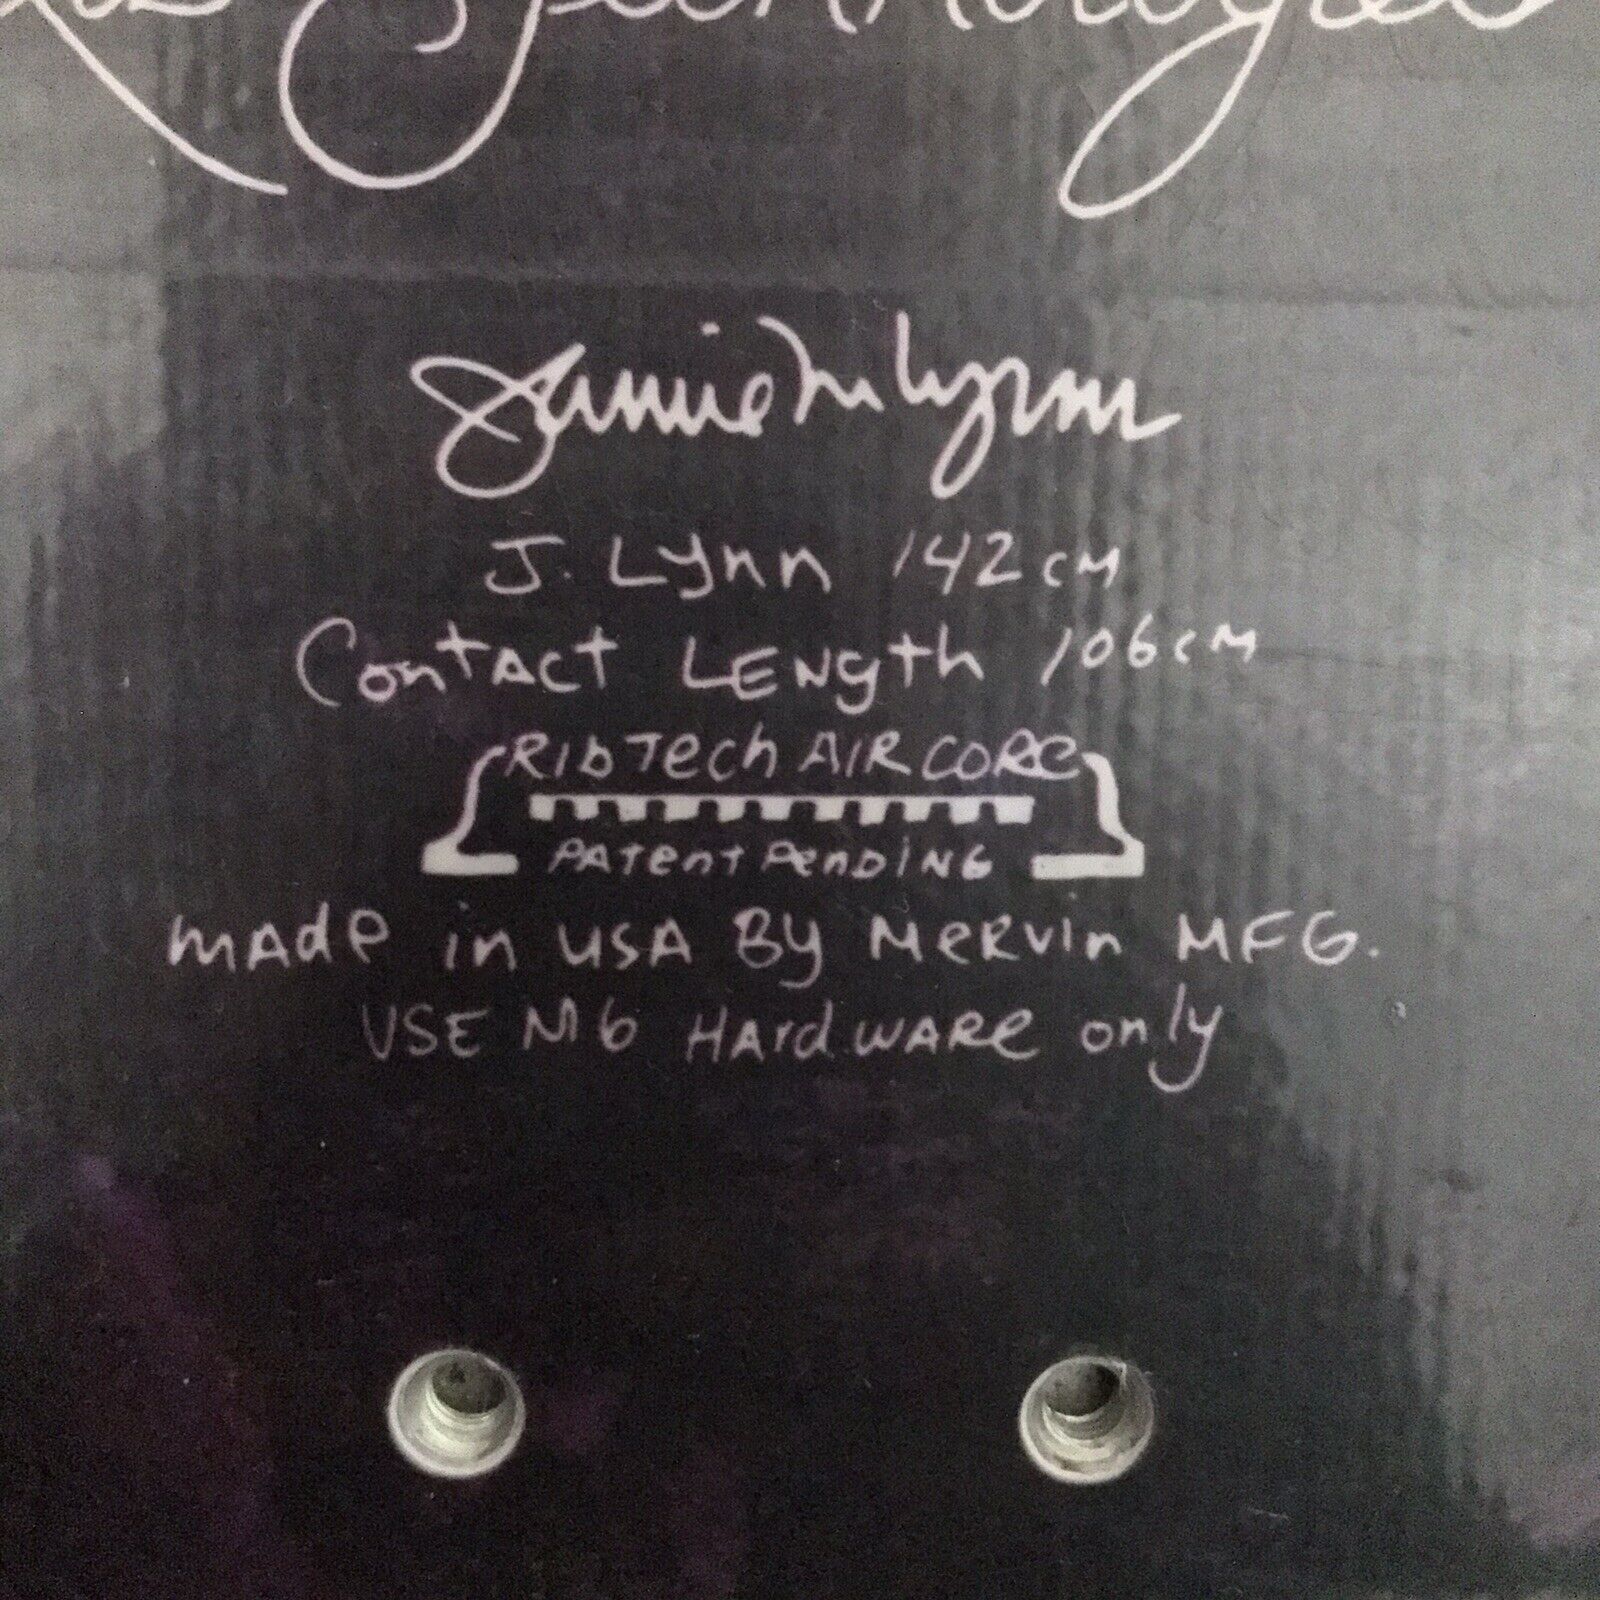 Lib Technologies
Jamie M Lynn
J. Lynn 142cm
Contact Length 106cm
Ribtech Air Core
Patent Pending
Made in USA By Mervin MFG.
USE M6 Hardware only